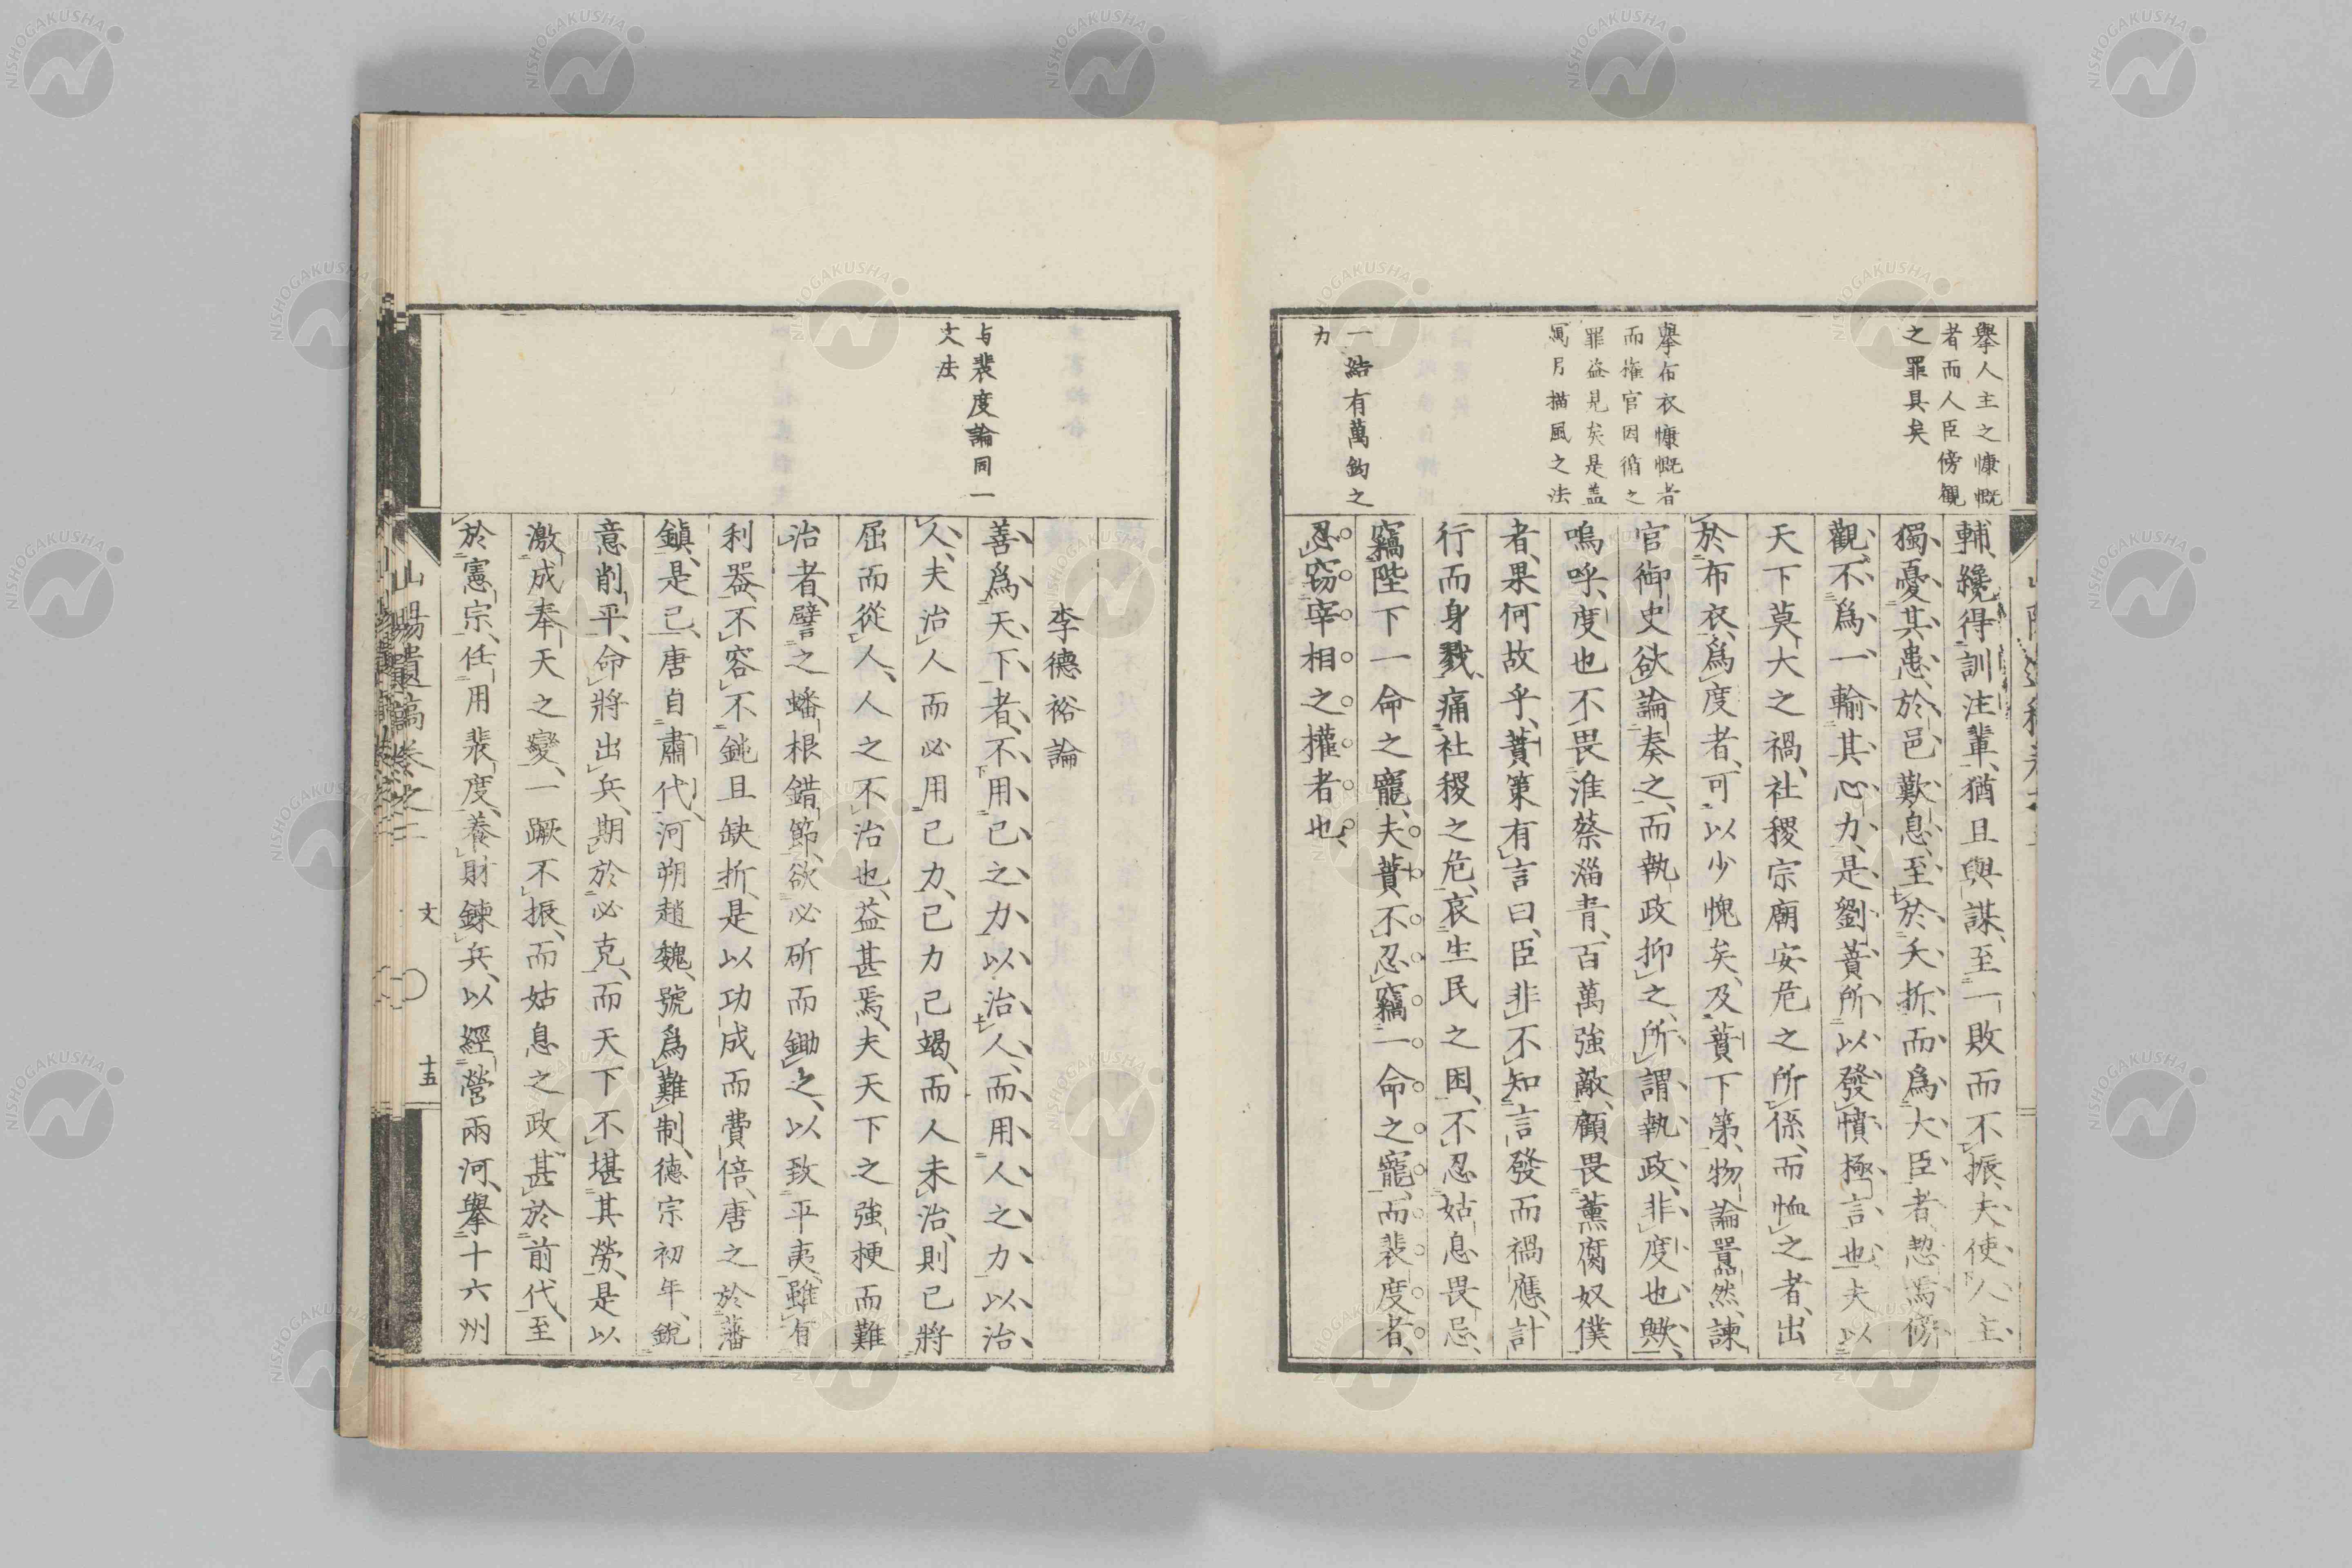 擧人主之慷慨
者而人臣傍観
之罪具矣
擧布衣慷慨者
而権官因循之
罪益見矣是盖
寓月描風之法
一結有萬鈞之
力
輔、纔得訓注輩、猶且與謀、至一敗而不振、夫使人主、
獨憂其患、於邑歎息、至於夭折、而爲大臣者、恝焉傍
觀、不爲一輸其心力、是劉蕡所以發憤極言也、夫以
天下莫大之禍、社稷宗廟安危之所係、而恤之者、出
於布衣、爲度者、可以少愧矣、及蕡下第、物論囂然、諫
官御史欲論奏之、而執政抑之、所謂執政、非度也歟、
嗚呼、度也不畏淮蔡淄青、百萬強敵、顧畏薫腐奴僕
者、果何故乎、蕡策有言曰、臣非不知言發而禍應、計
行而身戮、痛社稷之危、哀生民之困、不忍姑息畏忌、
竊陛下一命之寵、夫蕡不忍竊一命之寵、而裴度者、
忍竊宰相之權者也、
与裴度論同一
文法
李德裕論
善爲天下者、不用己之力、以治人、而用人之力、以治
人、夫治人而必用己力、己力已竭、而人未治、則已將
屈而從人、人之不治也、益甚焉、夫天下之強梗而難
治者、譬之蟠根錯節、欲必斫而鋤之、以致平夷、雖有
利器、不容不鈍且缺折、是以功成而費倍、唐之於藩
鎮、是已、唐自肅代、河朔趙魏、號爲難制、德宗初年、銳
意削平、命將出兵、期於必克、而天下不堪其勞、是以
激成奉天之變、一蹶不振、而姑息之政、甚於前代、至
於憲宗、任用裴度、養財鍊兵、以經營兩河、擧十六州
山陽遺稿卷之二
文
十五